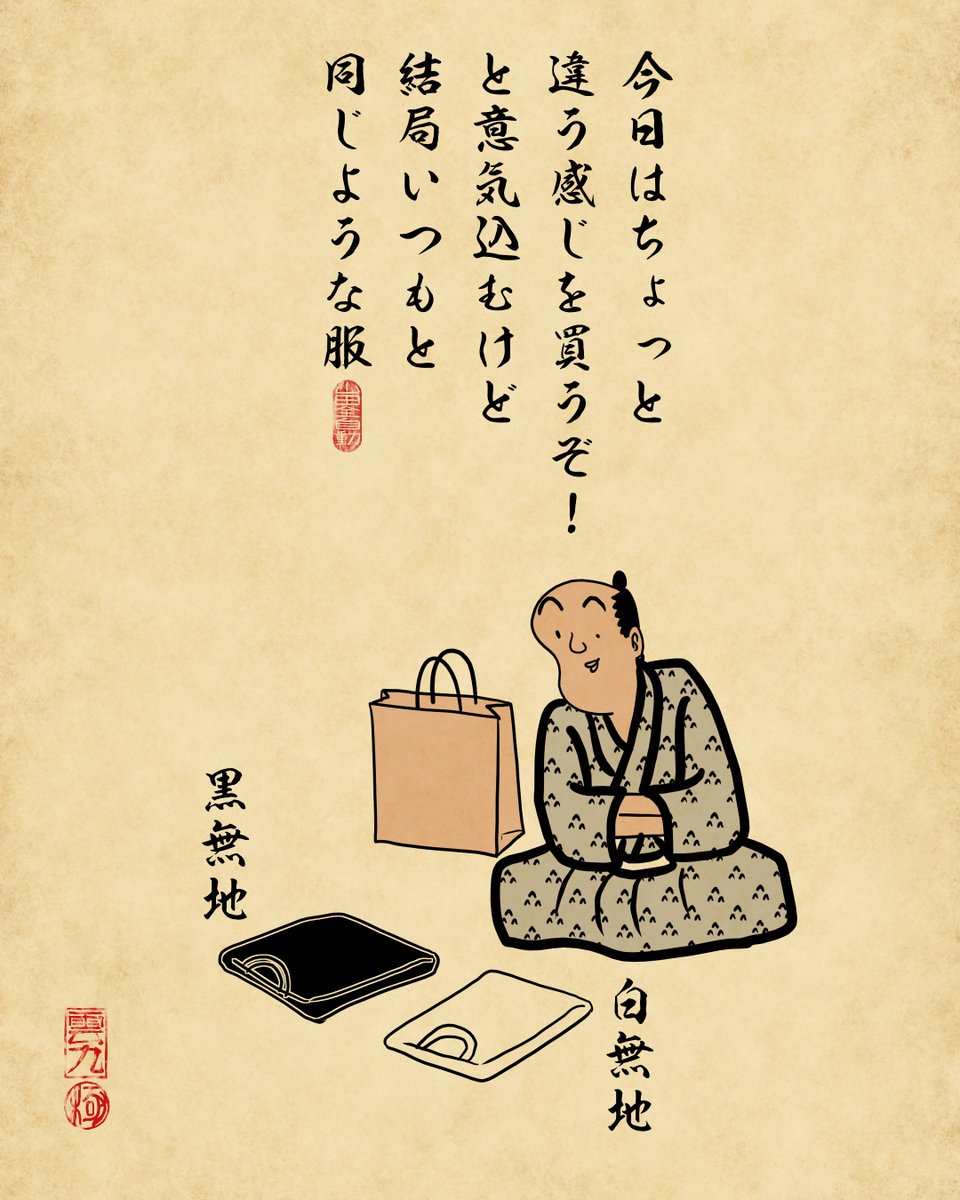 今日はちょっと
違う感じを買うぞ！
と意気込むけど
結局いつもと
同じような服
黒無地
白無地